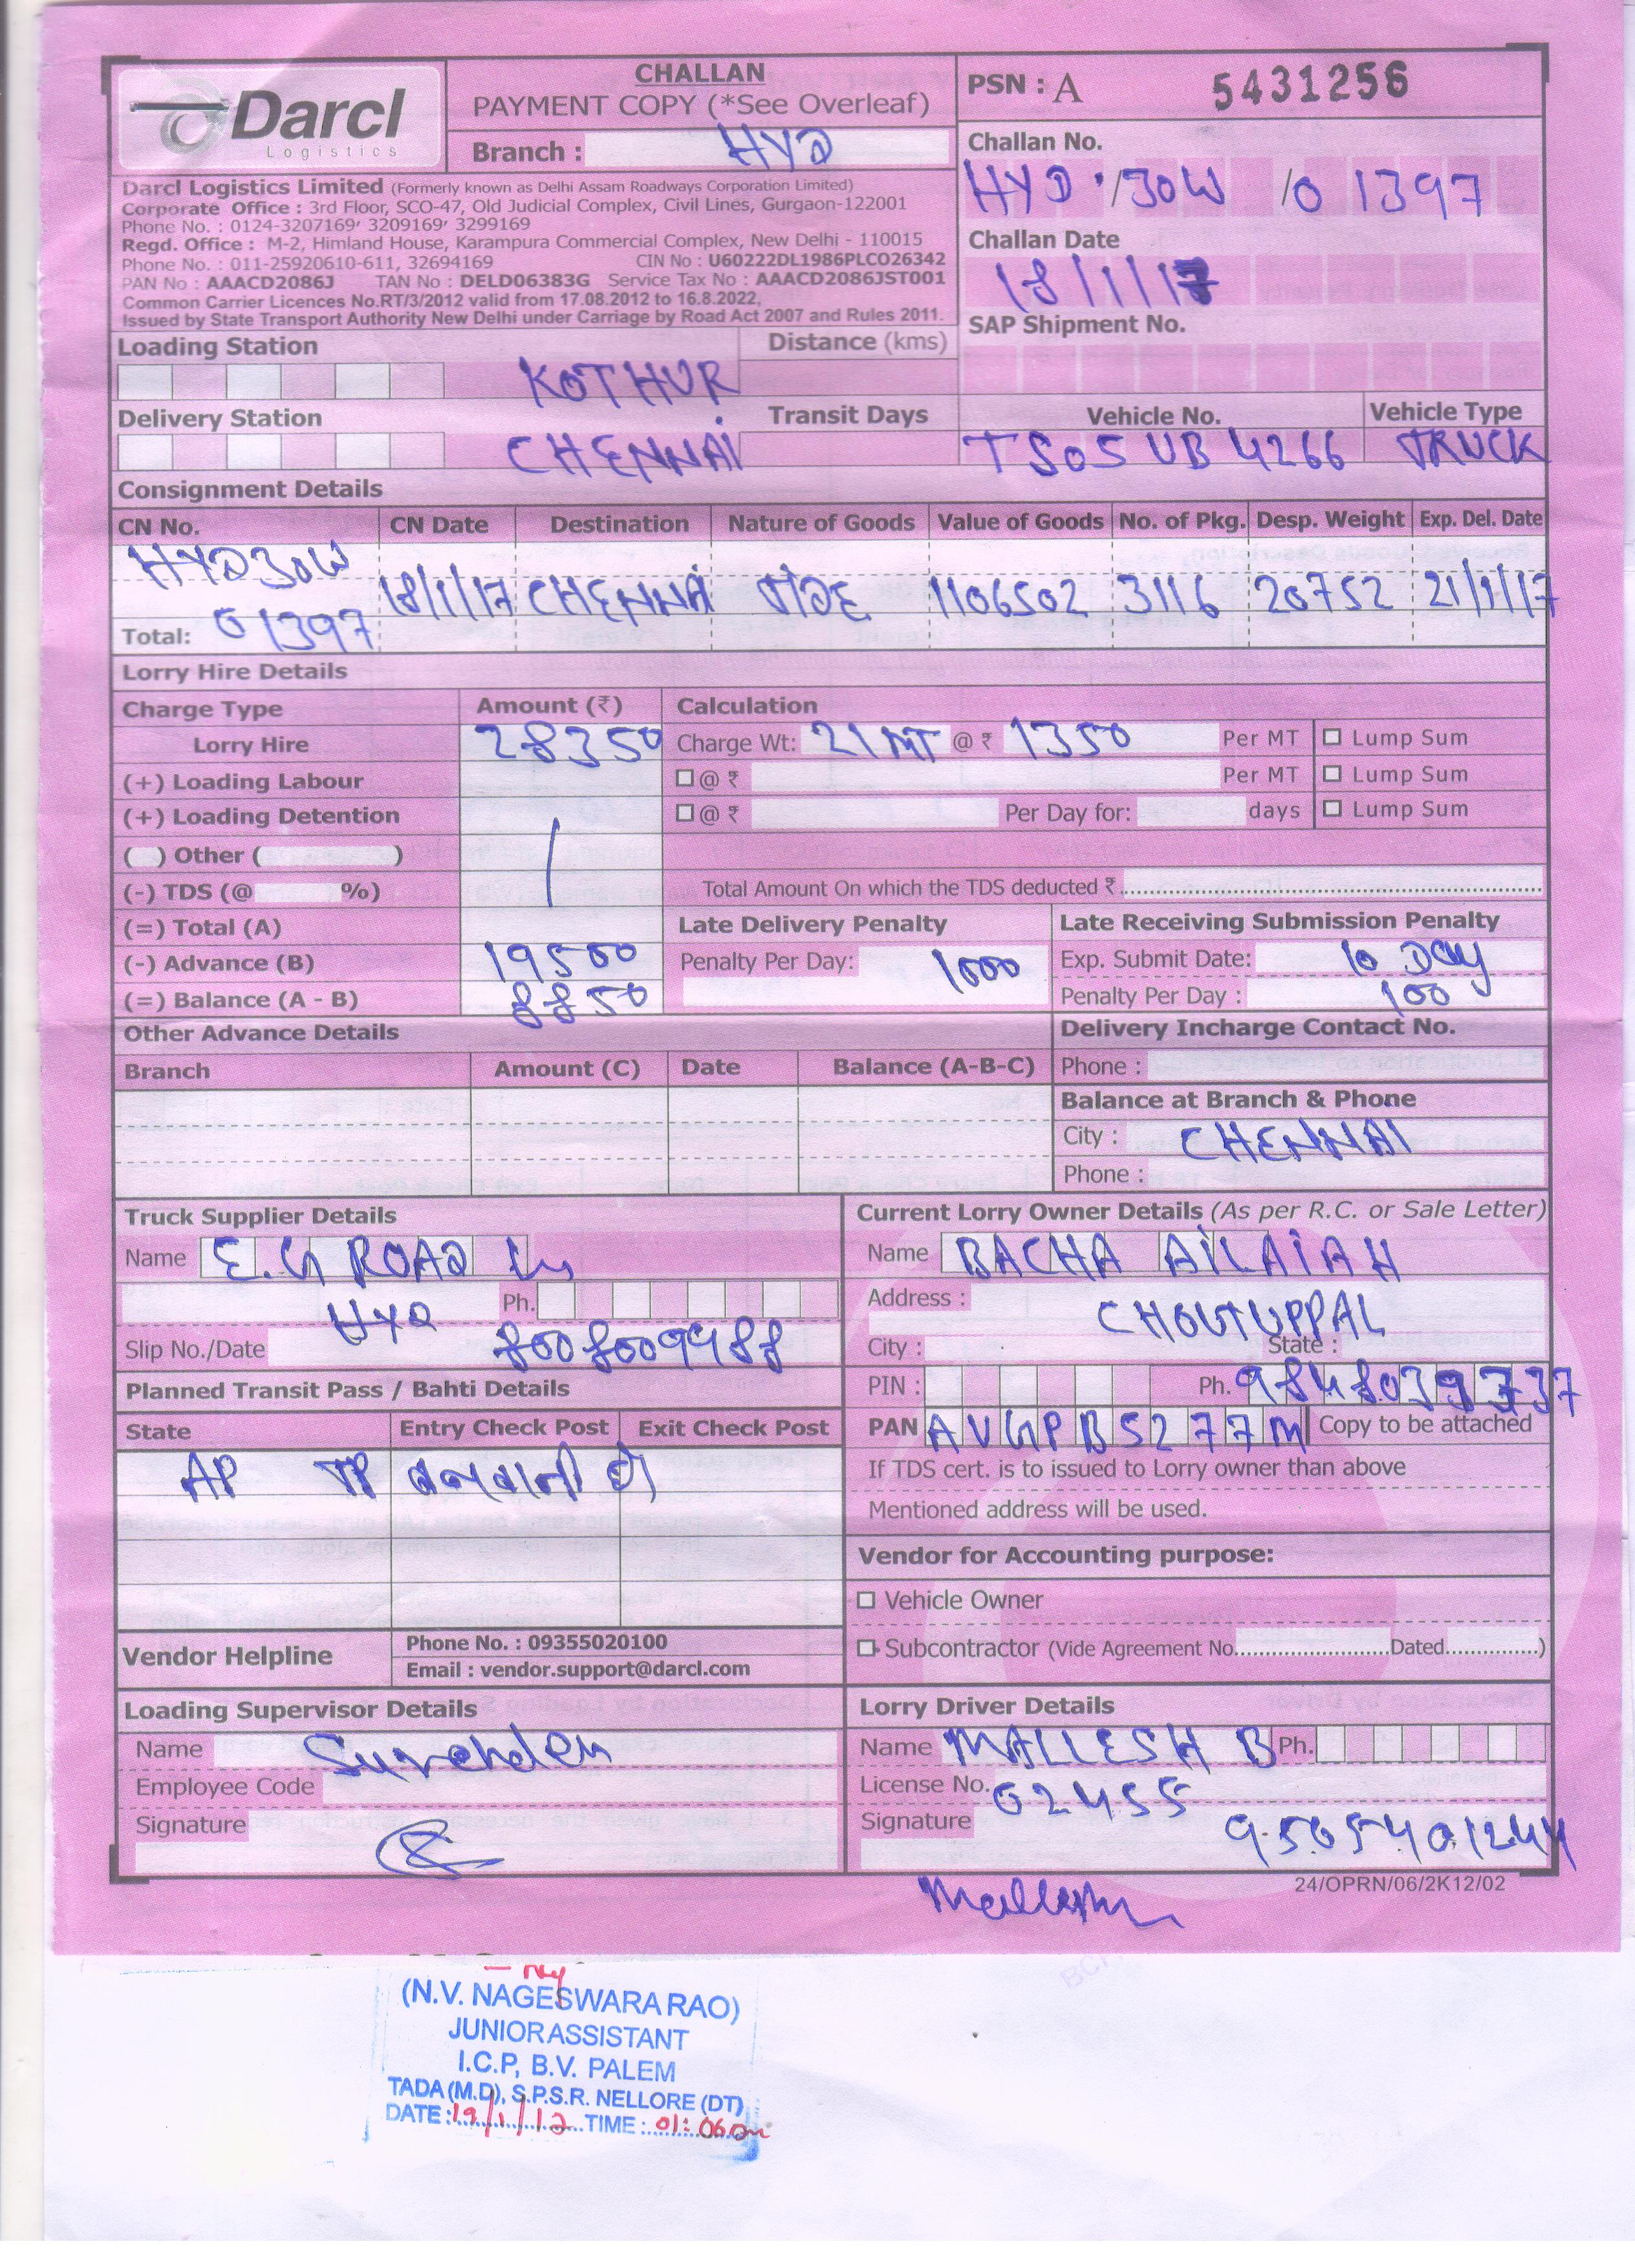 Darcl
Logistics
CHALLAN
PAYMENT COPY (*See Overleaf)
Branch : HYD
PSN : A 5431256
Challan No.
HYD /30W /01397
Challan Date
18/1/17
SAP Shipment No.
Darcl Logistics Limited (Formerly known as Delhi Assam Roadways Corporation Limited)
Corporate Office : 3rd Floor, SCO-47, Old Judicial Complex, Civil Lines, Gurgaon-122001
Phone No. : 0124-3207169, 3209169, 3299169
Regd. Office : M-2, Himland House, Karampura Commercial Complex, New Delhi - 110015
Phone No. : 011-25920610-611, 32694169 CIN No : U60222DL1986PLCO26342
PAN No : AAACD2086J TAN No : DELD06383G Service Tax No : AAACD2086JST001
Common Carrier Licences No.RT/3/2012 valid from 17.08.2012 to 16.8.2022,
Issued by State Transport Authority New Delhi under Carriage by Road Act 2007 and Rules 2011.
Loading Station KOTHUR Distance (kms)
Delivery Station CHENNAI Transit Days
Vehicle No. Vehicle Type
TS05 UB 4266 TRUCK
Consignment Details
CN No. CN Date Destination Nature of Goods Value of Goods No. of Pkg. Desp. Weight Exp. Del. Date
HYD30W
01397 18/1/17 CHENNAI 1106502 3116 20752 21/1/17
Total:
Lorry Hire Details
Charge Type Amount (₹) Calculation
Lorry Hire 28350 Charge Wt: 21 MT @ ₹ 1350 Per MT Lump Sum
(+) Loading Labour @ ₹ Per MT Lump Sum
(+) Loading Detention @ ₹ Per Day for: days Lump Sum
( ) Other ( )
(-) TDS (@ %) Total Amount On which the TDS deducted ₹
(=) Total (A) Late Delivery Penalty Late Receiving Submission Penalty
(-) Advance (B) 19500 Penalty Per Day: 1000 Exp. Submit Date: 10 DAY
(=) Balance (A - B) 8850 Penalty Per Day : 100
Other Advance Details Delivery Incharge Contact No.
Branch Amount (C) Date Balance (A-B-C) Phone :
Balance at Branch & Phone
City : CHENNAI
Phone :
Truck Supplier Details
Name E.G ROAD
HYD Ph.
Slip No./Date 8008009988
Current Lorry Owner Details (As per R.C. or Sale Letter)
Name BACHA AILAIAH
Address : CHOUTUPPAL
City : State :
PIN : Ph.
PAN AVGPB5277M Copy to be attached
If TDS cert. is to issued to Lorry owner than above
Mentioned address will be used.
Planned Transit Pass / Bahti Details
State Entry Check Post Exit Check Post
AP TP बनवानी है
Vendor for Accounting purpose:
Vehicle Owner
Subcontractor (Vide Agreement No. Dated )
Vendor Helpline Phone No. : 09355020100
Email : vendor.support@darcl.com
Loading Supervisor Details
Name Surender
Employee Code
Signature
Lorry Driver Details
Name MALLESH B Ph.
License No. 02455
Signature 9505401244
Mallesh
24/OPRN/06/2K12/02
(N.V. NAGESWARA RAO)
JUNIOR ASSISTANT
I.C.P, B.V. PALEM
TADA (M.D), S.P.S.R. NELLORE (DT)
DATE: 19/1/17 TIME: 01:06